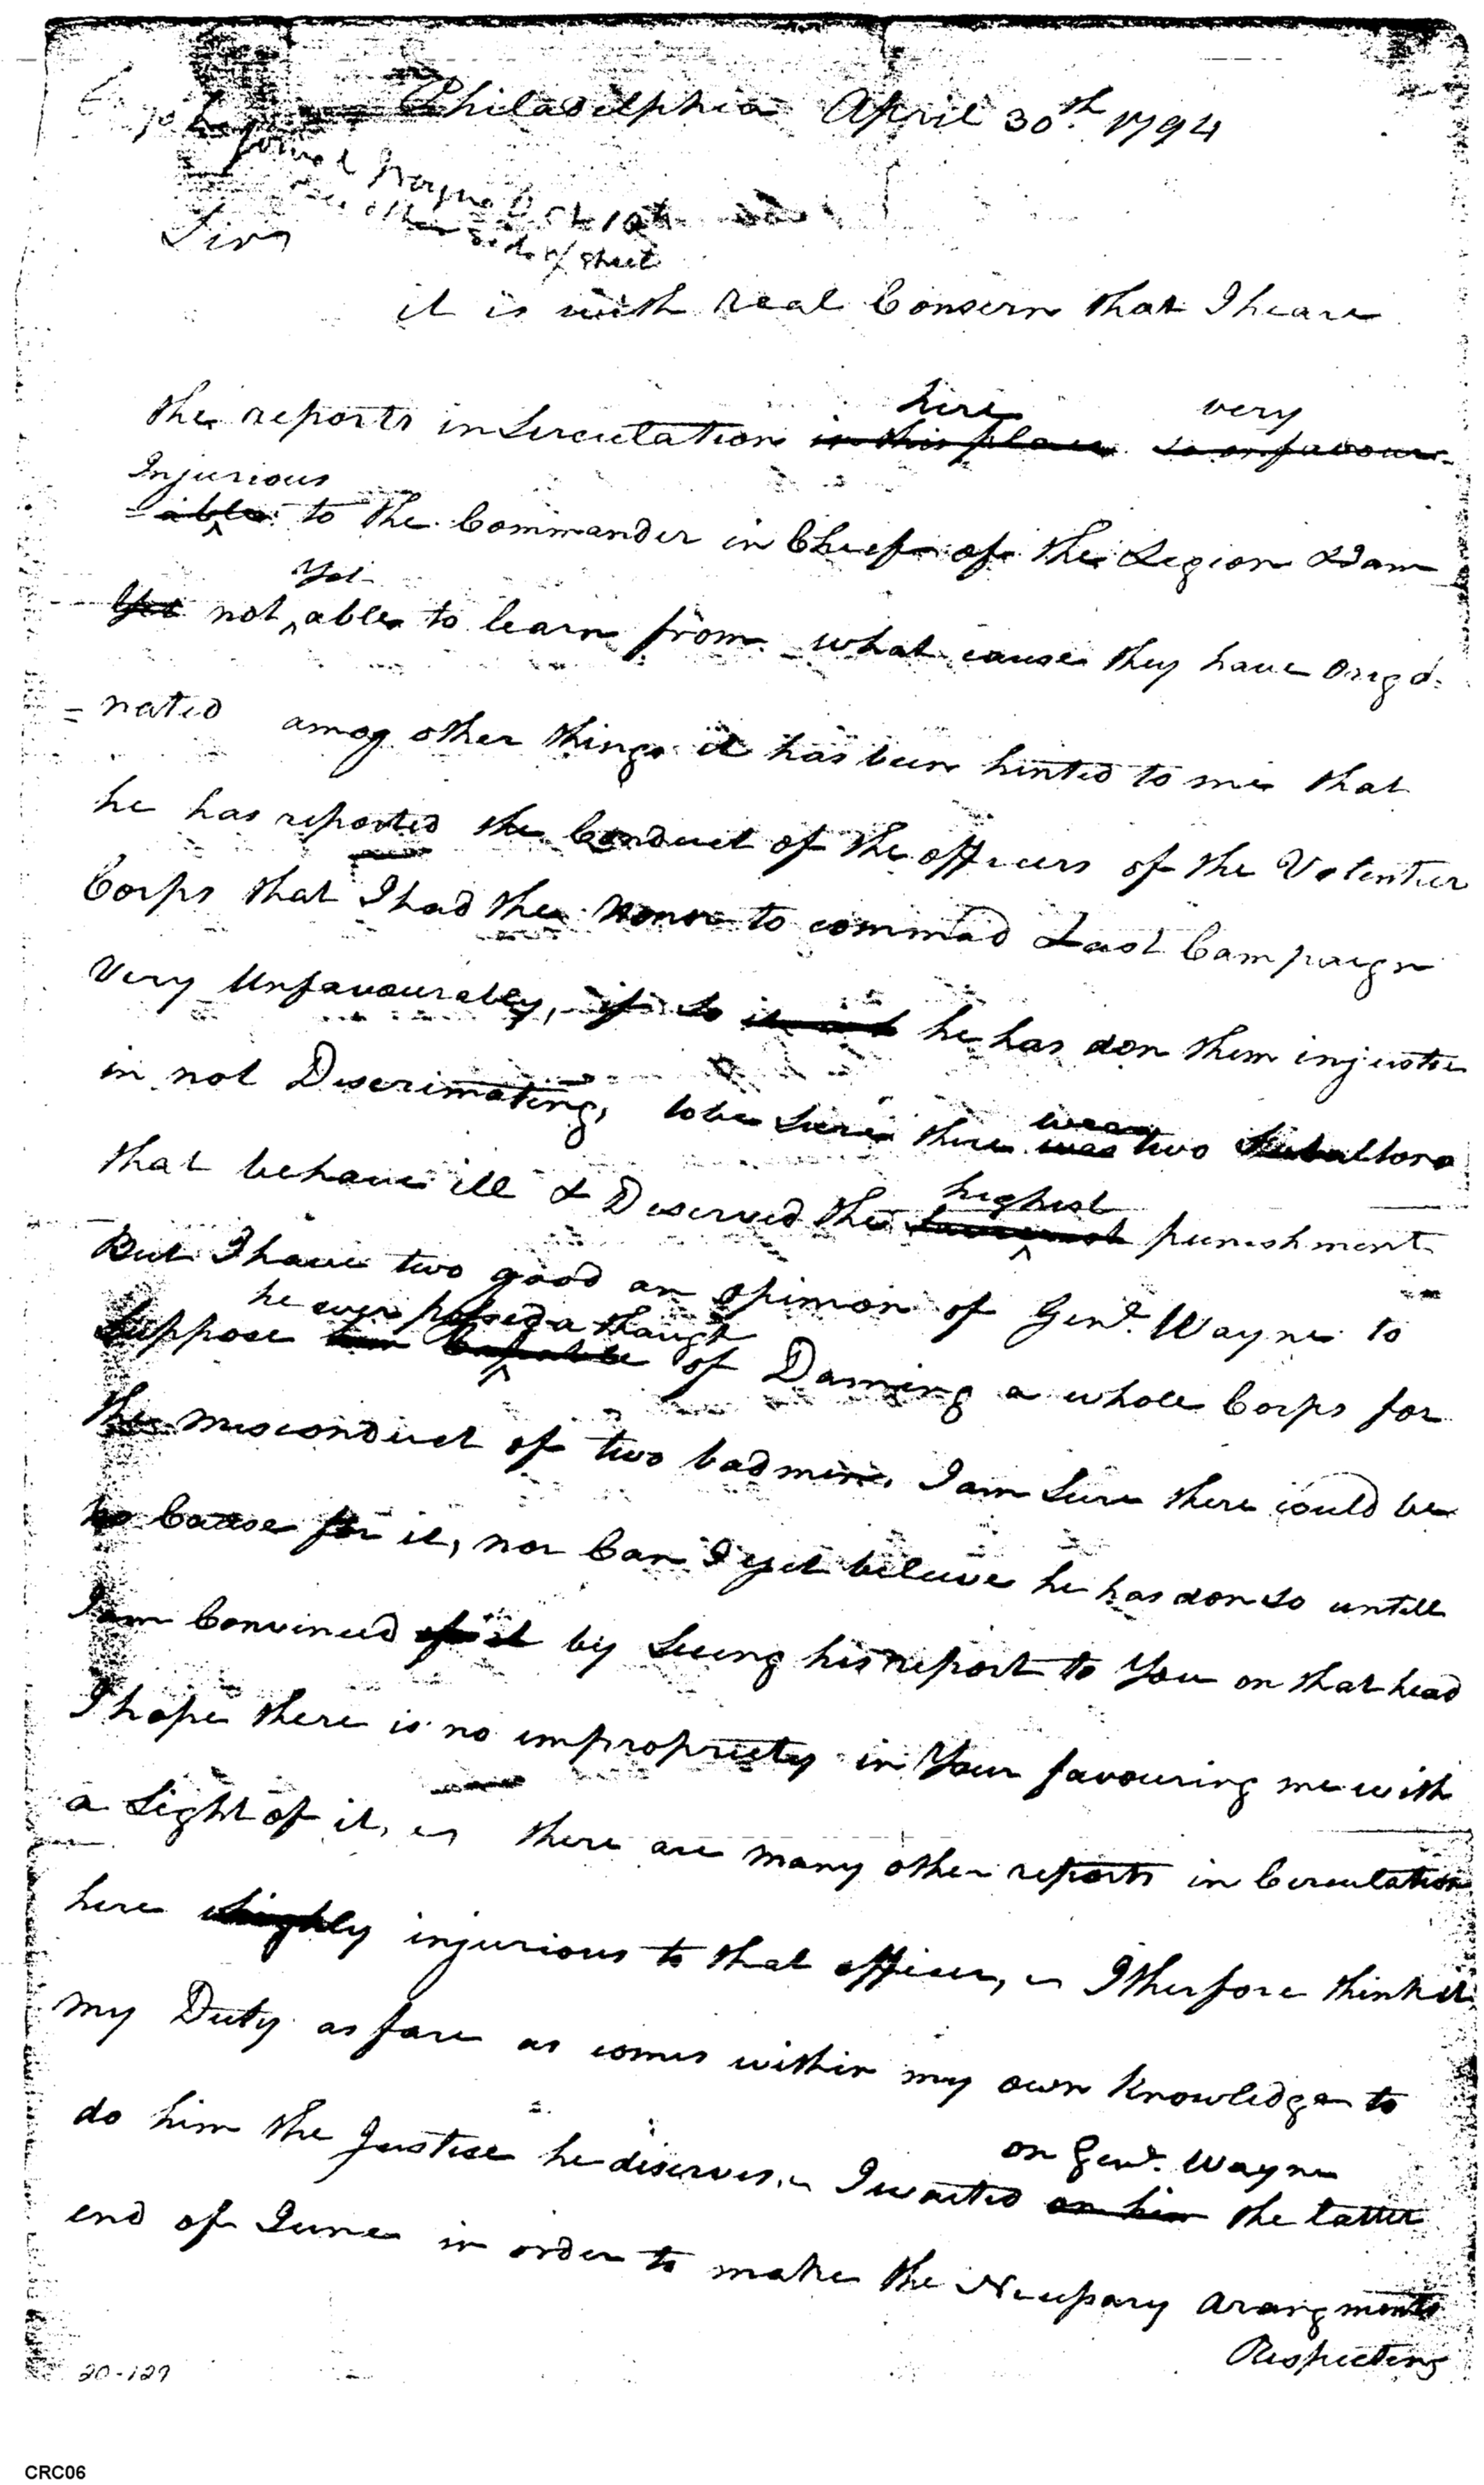 Philadelphia April 30th. 1794
other side of sheet
Sir
it is with real Consern that I heare
here very
the reports in Circulation in this place so unfavour-
Injurious
=able to the Commander in Chief of the Legion & I am
Yet
Yet not able to learn from what cause they have origi=
=nated amog other things it has been hinted to me that
he has reported the Conduct of the officers of the Volentier
Corps that I had the Honor to commad Last Campaign
Very Unfavourabley, if so he has don them injustice
in not Discrimating, to be Sure there
were
was two Subalterns
that behave ill & Deserved the
highest
punishment
But I have two good an opinion of Genl. Wayne to
he ever possed a thaught
Suppose him Capable of Daming a whole Corps for
the misconduct of two bad men, I am Sure there could be
no Cause for it, nor Can I yet beleive he has don so untill
I am Convinced of it by Seeing his report to You on that head
I hope there is no impropriety in Your favouring me with
a Sight of it, as there are many other reports in Circulation
here highly injurious to that officer, I therfore think it
my Duty as fare as comes within my own Knowledge to
do him the Justice he diserves.
on Genl. Wayne
I waited on him the latter
end of June in order to make the Necessary Arangments
Respecting
20-127
CRC06